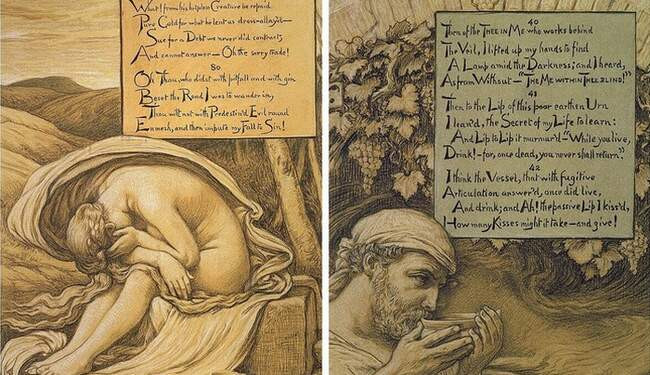 What! from his helpless Creature be repaid
Pure Gold for what he lent us dross-allay'd—
Sue for a Debt we never did contract,
And cannot answer—Oh the sorry trade!
80
Oh Thou, who didst with pitfall and with gin
Beset the Road I was to wander in,
Thou wilt not with Predestin'd Evil round
Enmesh, and then impute my Fall to Sin!
40
Then of the THEE IN ME who works behind
The Veil, I lifted up my hands to find
A Lamp amid the Darkness; and I heard,
As from Without—"THE ME WITHIN THEE BLIND!"
41
Then to the Lip of this poor earthen Urn
I lean'd, the Secret of my Life to learn:
And Lip to Lip it murmur'd—"While you live,
Drink!—for, once dead, you never shall return."
42
I think the Vessel, that with fugitive
Articulation answer'd, once did live,
And drink; and Ah! the passive Lip I kiss'd,
How many Kisses might it take—and give!